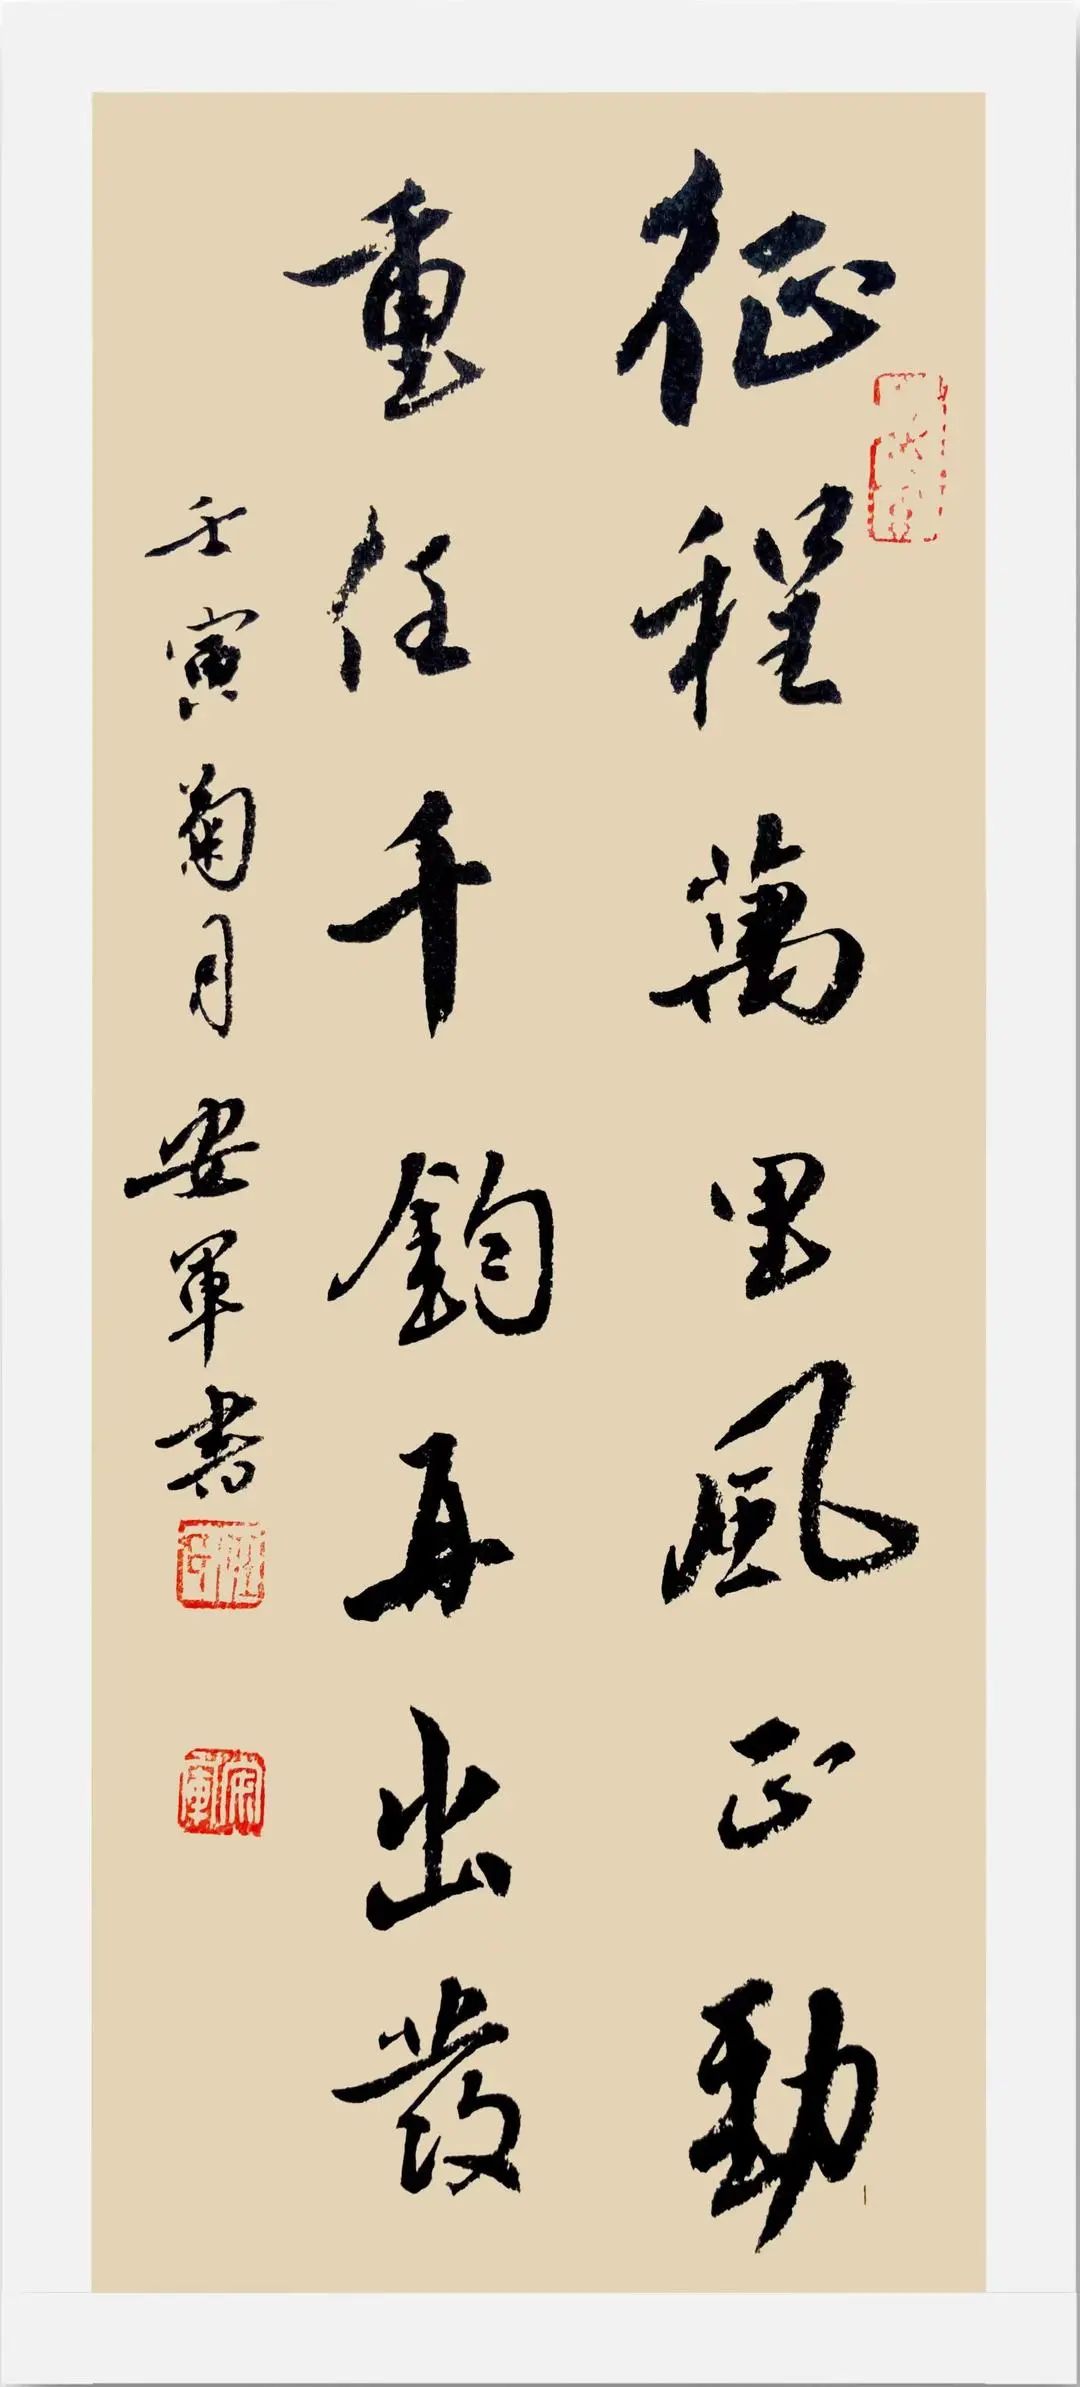 征程萬里風正勁
重任千鈞再出發
壬寅菊月安軍書
安軍